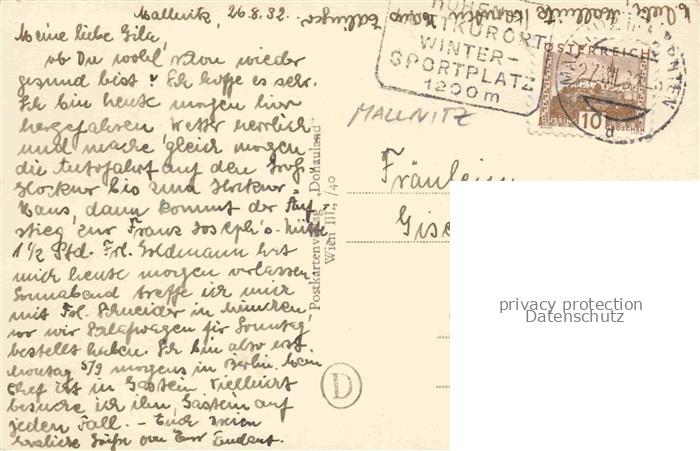 Mallnitz, 26.8.32.
Meine liebe Gila,
ob Du wohl schon wieder
gesund bist? Ich hoffe es sehr.
Ich bin heute morgen hier
hergefahren, Wetter herrlich
und mache gleich morgen
die Autofahrt auf den Groß-
glockner bis zum Glockner-
Haus, dann kommt der Auf-
stieg zur Franz Joseph's-Hütte
1½ Std. Frl. Goldmann hat
mich heute morgen verlassen
Sonnabend treffe ich mich
mit Frl. Schneider in München,
wo wir Schlafwagen für Sonntag
bestellt haben. Ich bin also erst
Montag 5/9 morgens in Berlin. Mein
Chef ist in Gastein vielleicht
besuche ich ihn, Gastein auf
jeden Fall. – Euch
herzliche Grüße von
Mallnitz Haus
HÖHEN
LUFTKURORT
WINTER-
SPORTPLATZ
1200m
MALLNITZ
ÖSTERREICH
10 GROSCHEN
Postkartenverlag „Donauland“
Wien III., /40
D
Fräulein
Gise
privacy protection
Datenschutz